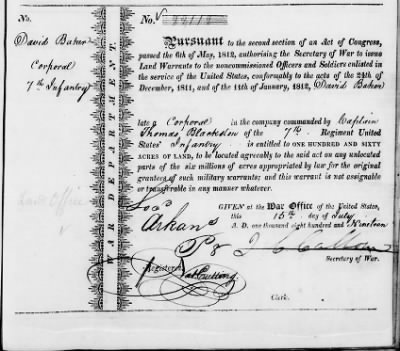 No.
David Baker
Corporal
7th Infantry
Land Office
WAR DEPARTMENT.
No.
Pursuant to the second section of an Act of Congress,
passed the 6th of May, 1812, authorising the Secretary of War to issue
Land Warrants to the noncommissioned Officers and Soldiers enlisted in
the service of the United States, conformably to the acts of the 24th of
December, 1811, and of the 11th of January, 1812, David Baker
late a Corporal in the company commanded by Captain
Thomas of the 7th Regiment United
States' Infantry is entitled to ONE HUNDRED AND SIXTY
ACRES OF LAND, to be located agreeably to the said act on any unlocated
parts of the six millions of acres appropriated by law for the original
grantees of such military warrants; and this warrant is not assignable
or transferable in any manner whatever.
GIVEN at the War Office of the United States,
this 15th day of July
A. D. one thousand eight hundred and Nineteen
Loc. Arkans
Secretary of War.
Registered
Clerk.